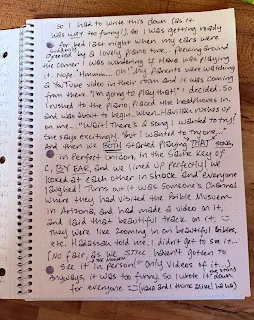 So I had to write this down (as it
was way to funny!), so I was getting ready
for bed last night when my ears were
suddenly greeted by a lovely piano tune... Peeking around
the corner I was wondering if Havs was playing
it. Nope. Hmmm... Oh! My parents were watching
a YouTube video in their room and it was coming
from them. "I'm going to play that!" I decided. So
I rushed to the piano, placed the headphones in,
and was about to begin. When Havilah rushes up
on me... "Wait! There's a song I wanted to try!"
she says excitingly "But I wanted to try one..."
And then we BOTH started playing THAT song,
in Perfect Unison, in the same key of
C, BY EAR, and we lined up perfectly! We
looked at each other in shock and everyone
laughed! Turns out it was someone's channel
where they had visited the Bible Museum
in Arizona, and had made a video on it,
and laid that beautiful track on it. :)
They were like zooming in on beautiful Bibles,
etc. Hadassah told me. I didn't get to see it...
(No fair, as we STILL haven't gotten to
see it in person! Only videos of it...)
Anyways it was too funny. So I wrote it down
for everyone :) (Havs and I thone alive!, ha ha)